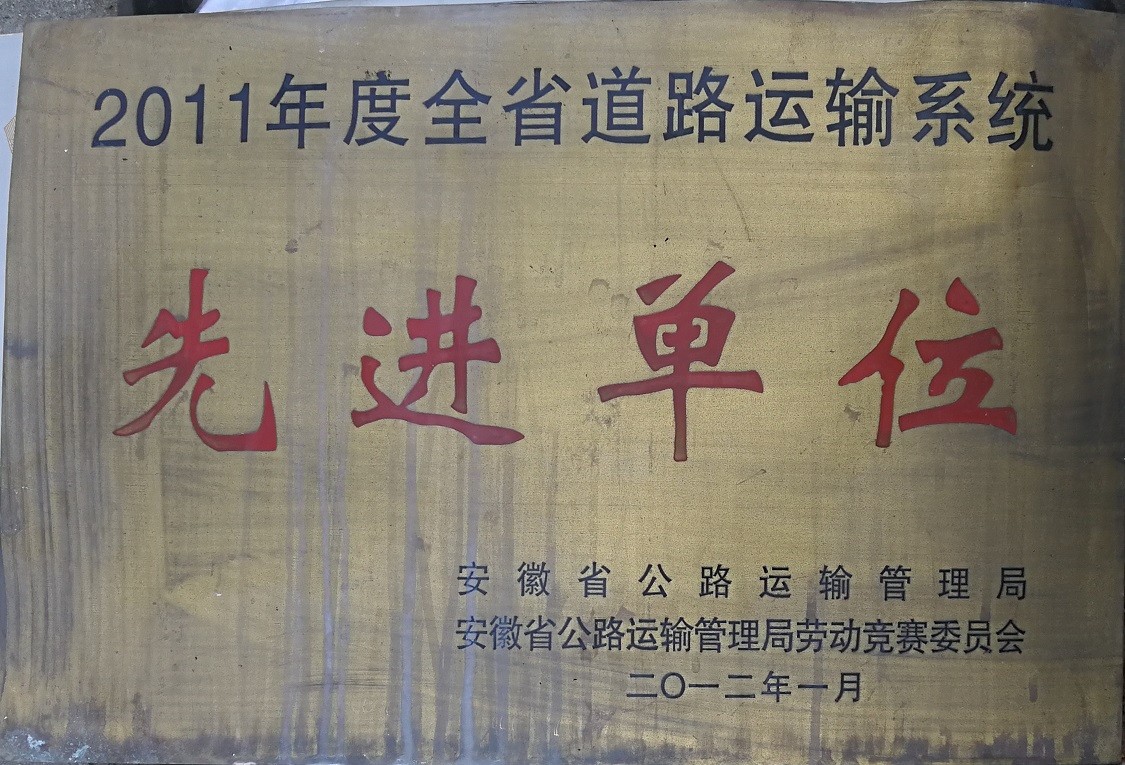 2011年度全省道路运输系统
先进单位
安徽省公路运输管理局
安徽省公路运输管理局劳动竞赛委员会
二〇一二年一月